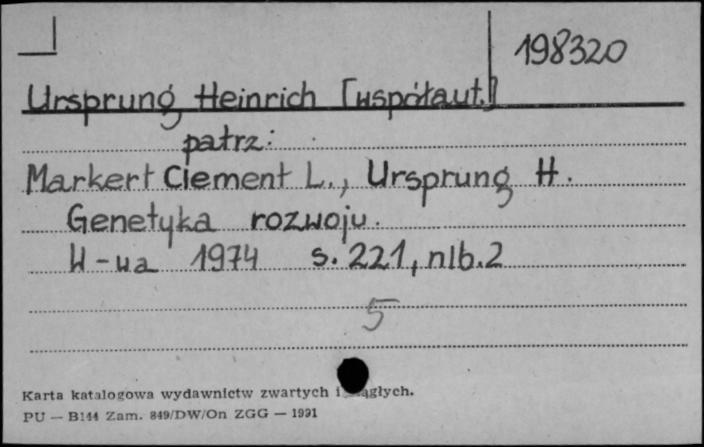 198320
Ursprung Heinrich [współaut.]
patrz:
Markert Clement L., Ursprung H.
Genetyka rozwoju.
W-wa 1974 s. 221, nlb. 2
5
Karta katalogowa wydawnictw zwartych i ciągłych.
PU — B144 Zam. 849/DW/On ZGG — 1991